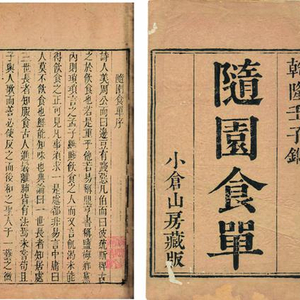 乾隆壬子鐫
隨園食單
小倉山房藏版
隨園食單序
詩人美周公而曰籩豆有踐惡凡伯而曰彼疏斯稗古
之於飲食也若是重乎他若易稱鼎烹書稱鹽梅鄉黨
內則瑣瑣言之孟子雖賤飲食之人而又言飢渴未能
得飲食之正可見凡事須求一是處都非易言中庸曰
人莫不飲食也鮮能知味也典論曰一世長者知居處
三世長者知服食古人進鬐離肺皆有法焉未嘗苟且
子與人歌而善必使反之而後和之聖人於一藝之微